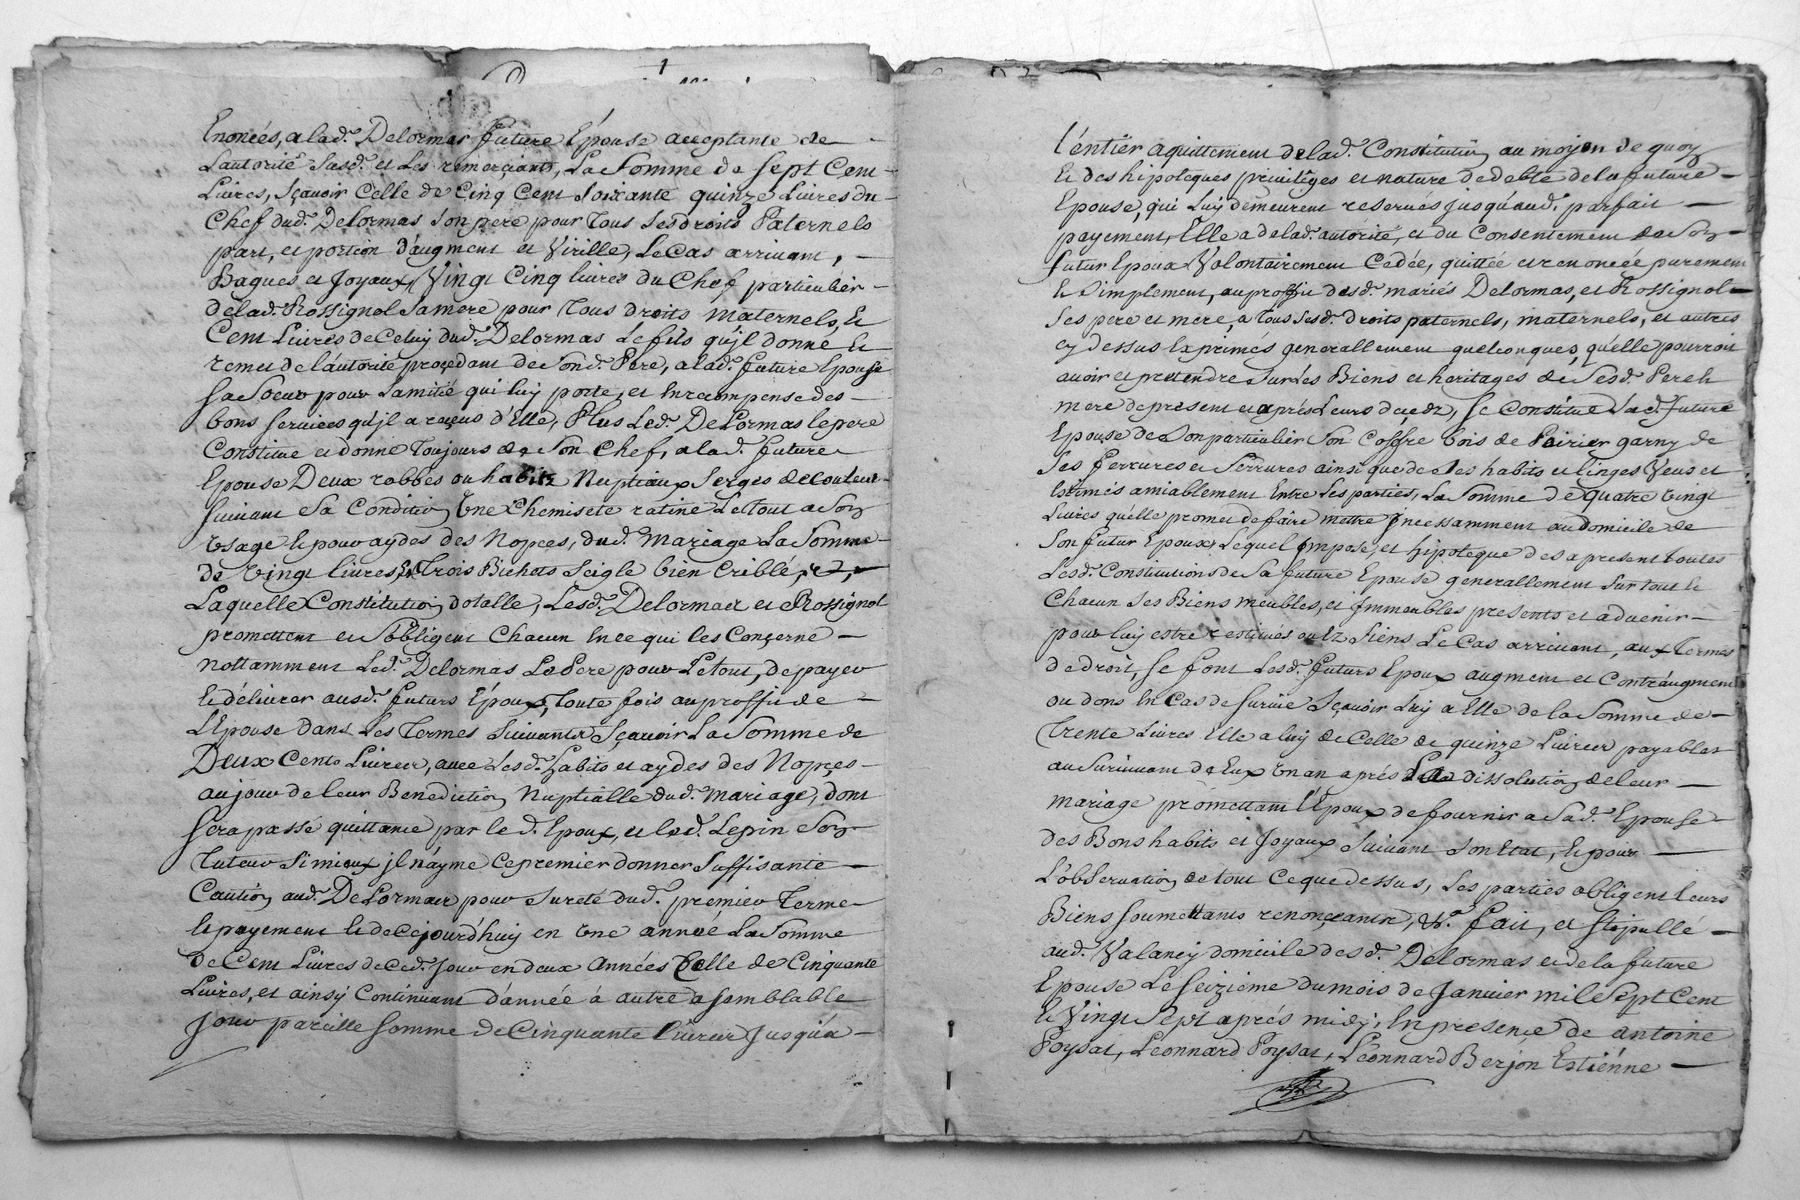 Enoncés, a lad.e Delormas future Epouse acceptante de
Lautorité Susd.e et Les remerciant, La Somme de Sept Cent
Livres, Sçavoir Celle de Cinq Cent Soixante quinze Livres du
Chef dud.t Delormas Son pere pour Tous Ses droits Paternels
part, et portion d'augment et Virille, Le Cas arrivant,
Bagues et Joyaux, Vingt Cinq livres du Chef particulier
de lad.e Rossignol Sa mere pour Tous droits maternels, Et
Cent Livres de Celuy dud.t Delormas Le fils qu'jl donne Et
remet de l'autorité procedant de Sond.t Pere, a lad.e future Epouse
Sa Soeur pour L'amitié qui luy porte, et En recompense des
bons Services qu'jl a reçeus d'Elle, Plus Led.t DeLormas le pere
Constitue et donne Toujours de Son Chef, a lad.e future
Epouse Deux robbes ou habitz Nuptiaux Serges de Couleur
Suivant Sa Condition Une Chemisete ratine Le Tout a Son
Usage Et pour aydes des Nopces, dud.t mariage La Somme
de Vingt livres, Et Trois Bichots Seigle bien Criblé,
Laquelle Constitution dotalle, Lesd.s Delormas et Rossignol
promettent et S'obligent Chacun En ce qui les Conçerne
nottamment Led.t Delormas Le Pere pour Le tout, de payer
Et délivrer ausd.s futurs Epoux, Toute fois au proffit de
L'Epouse dans Les Termes Suivants Sçavoir La Somme de
Deux Cents Livres, avec Lesd.s habits et aydes des Nopçes
au jour de leur Benediction Nuptialle dud.t mariage, dont
Sera passé quittance par led.t Epoux, et led.t Lepin Son
Tuteur Si mieux jl n'ayme Ce premier donner Suffisante
Caution aud.t DeLormas pour Sureté dud.t prémier Terme
Et payement Et de Cejourd'huy en Une année La Somme
de Cent Livres de Ced.t Jour en deux Années Celle de Cinquante
Livres, et ainsy Continuant d'année à autre a Semblable
Jour pareille Somme de Cinquante livres Jusqu'a
l'éntier aquittement de lad.e Constitution au moyen de quoy
Et des hipoteques privileges et nature de debte de la future
Epouse, qui Luy demeurent reservés jusqu'aud.t parfait
payement, Elle a de lad.e autorité, et du Consentement de Son
futur Epoux Volontairement Cedée, quittée et renoncée purement
Et Simplement, au proffit desd.s mariés Delormas, et Rossignol
Ses pere et mere, a Tous Sesd.s droits paternels, maternels, et autres
cy dessus Exprimés generallement quelconques, qu'elle pourroit
avoir et pretendre Sur Les Biens et heritages de Sesd.s Pere Et
mere de present et aprés Leurs deçedz, Se Constitue Lad.e future
Epouse de Son particulier Son Coffre bois de Poirier garny de
Ses ferrures et Serrures ainsi que de Ses habits et linges Veus et
Estimés amiablement Entre Les parties, La Somme de quatre Vingt
Livres qu'elle promet de faire mettre Jncessamment au domicile de
Son futur Epoux, Lequel Jmpose, et hipoteque des a present toutes
Lesd.s Constitutions de Sa future Epouse generallement Sur tout Et
Chacun Ses Biens meubles, et Jmmeubles presents et advenir
pour luy estre restitués ou Ez Siens Le Cas arrivant, aux Termes
de droit, Se font Lesd.s futurs Epoux augment et Contr'augment
ou dons En Cas de Survie Sçavoir Luy a Elle de la Somme de
Trente Livres Elle a luy de Celle de quinze Livres payables
au Survivant d'Eux Un an aprés La dissolution de leur
mariage promettant l'Epoux de fournir a Sad.e Epouse
des Bons habits et Joyaux Suivant Son Etat, Et pour
L'observation de tout Ce que dessus, Les parties obligent leurs
Biens Soumettants renonçeants, &.a fait, et Stipullé
aud.t Valancy domicile desd.s Delormas et de la future
Epouse Le Seizieme du mois de Janvier mil Sept Cent
Et Vingt Sept aprés midy; En presence de antoine
Poysat, Leonnard Poysat, Léonnard Berjon Estiénne